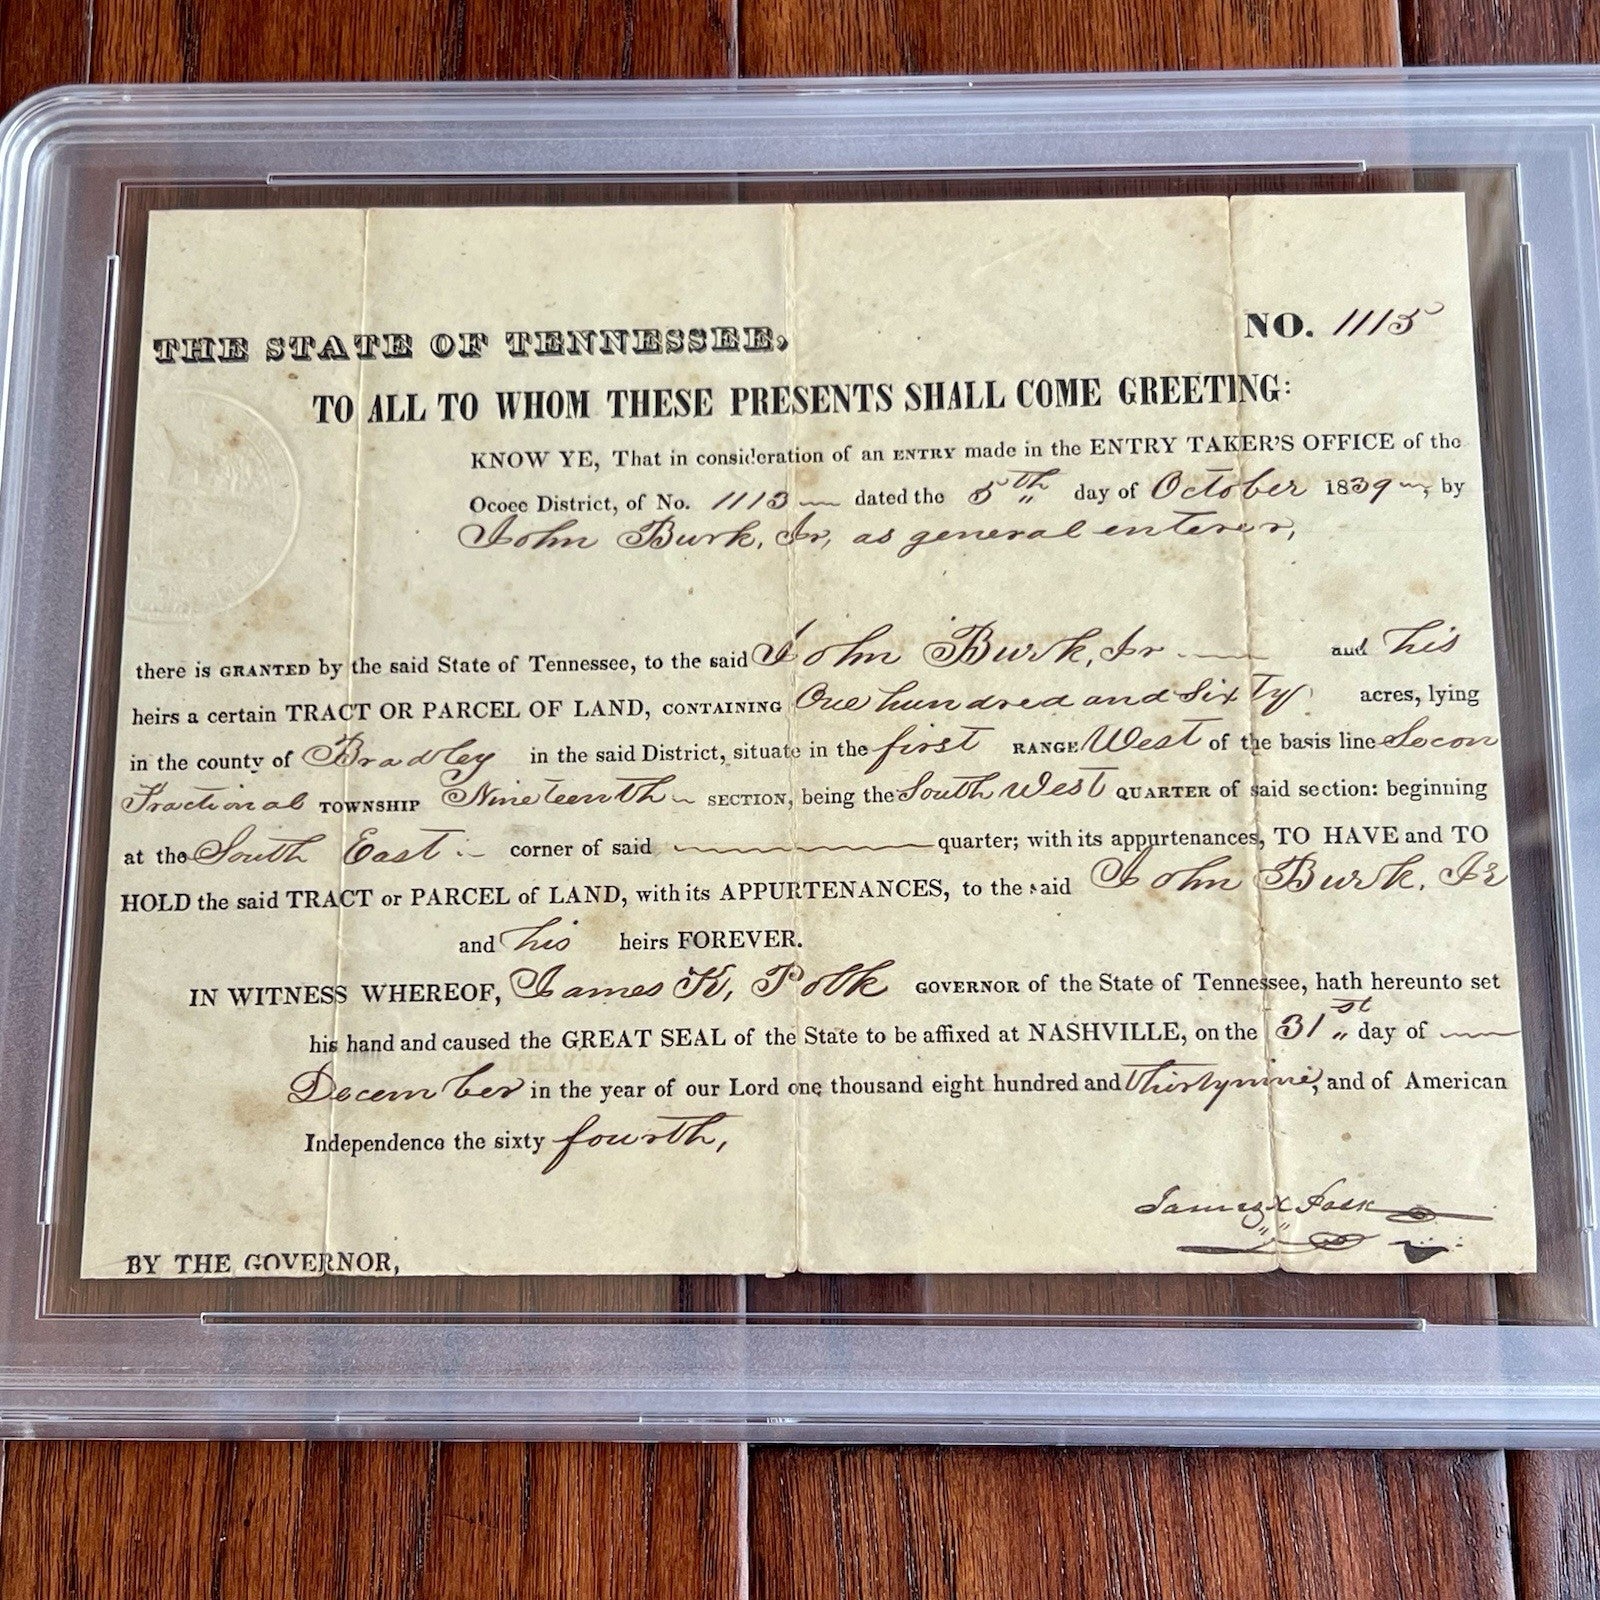 THE STATE OF TENNESSEE, NO. 1115
TO ALL TO WHOM THESE PRESENTS SHALL COME GREETING:
KNOW YE, That in consideration of an ENTRY made in the ENTRY TAKER'S OFFICE of the
Ocoee District, of No. 1113 dated the 5th day of October 1839, by
John Burk, Jr, as general enterer,
there is GRANTED by the said State of Tennessee, to the said John Burk, Jr and his
heirs a certain TRACT OR PARCEL OF LAND, CONTAINING One hundred and Sixty acres, lying
in the county of Bradley in the said District, situate in the first RANGE West of the basis line Secon
Fractional TOWNSHIP Nineteenth SECTION, being the South West QUARTER of said section: beginning
at the South East corner of said quarter; with its appurtenances, TO HAVE and TO
HOLD the said TRACT or PARCEL of LAND, with its APPURTENANCES, to the said John Burk, Jr
and his heirs FOREVER.
IN WITNESS WHEREOF, James K, Polk GOVERNOR of the State of Tennessee, hath hereunto set
his hand and caused the GREAT SEAL of the State to be affixed at NASHVILLE, on the 31st day of
December in the year of our Lord one thousand eight hundred and thirtynine, and of American
Independence the sixty fourth,
James K Polk
BY THE GOVERNOR,